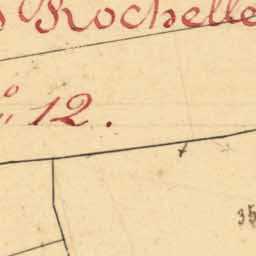 Rochelle
12.
35